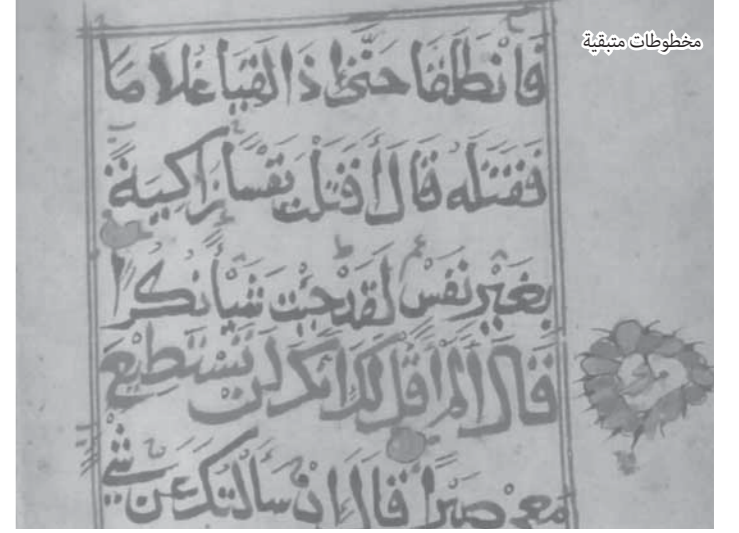 مخطوطات متبقية
فَانْطَلَقَا حَتَّىٰ إِذَا لَقِيَا غُلَامًا
فَقَتَلَهُ قَالَ أَقَتَلْتَ نَفْسًا زَاكِيَةً
بِغَيْرِ نَفْسٍ لَقَدْ جِئْتَ شَيْأً نُكْرًا
قَالَ أَلَمْ أَقُلْ لَكَ إِنَّكَ لَنْ تَسْتَطِيعَ
مَعِيَ صَبْرًا قَالَ إِنْ سَأَلْتُكَ عَنْ شَيْءٍ